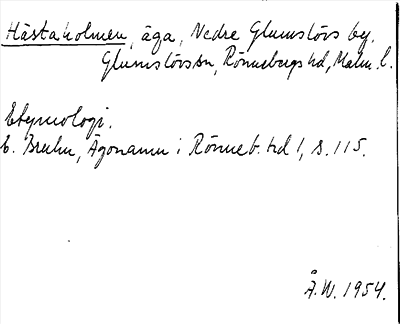 Hästaholmen, äga, Nedre Glumslövs by,
Glumslövs sn, Rönnebergs hd, Malm. l.
Etymologi.
E. Bruhn, Ägonamn i Rönneb. hd 1, s. 115.
Å.W. 1954.